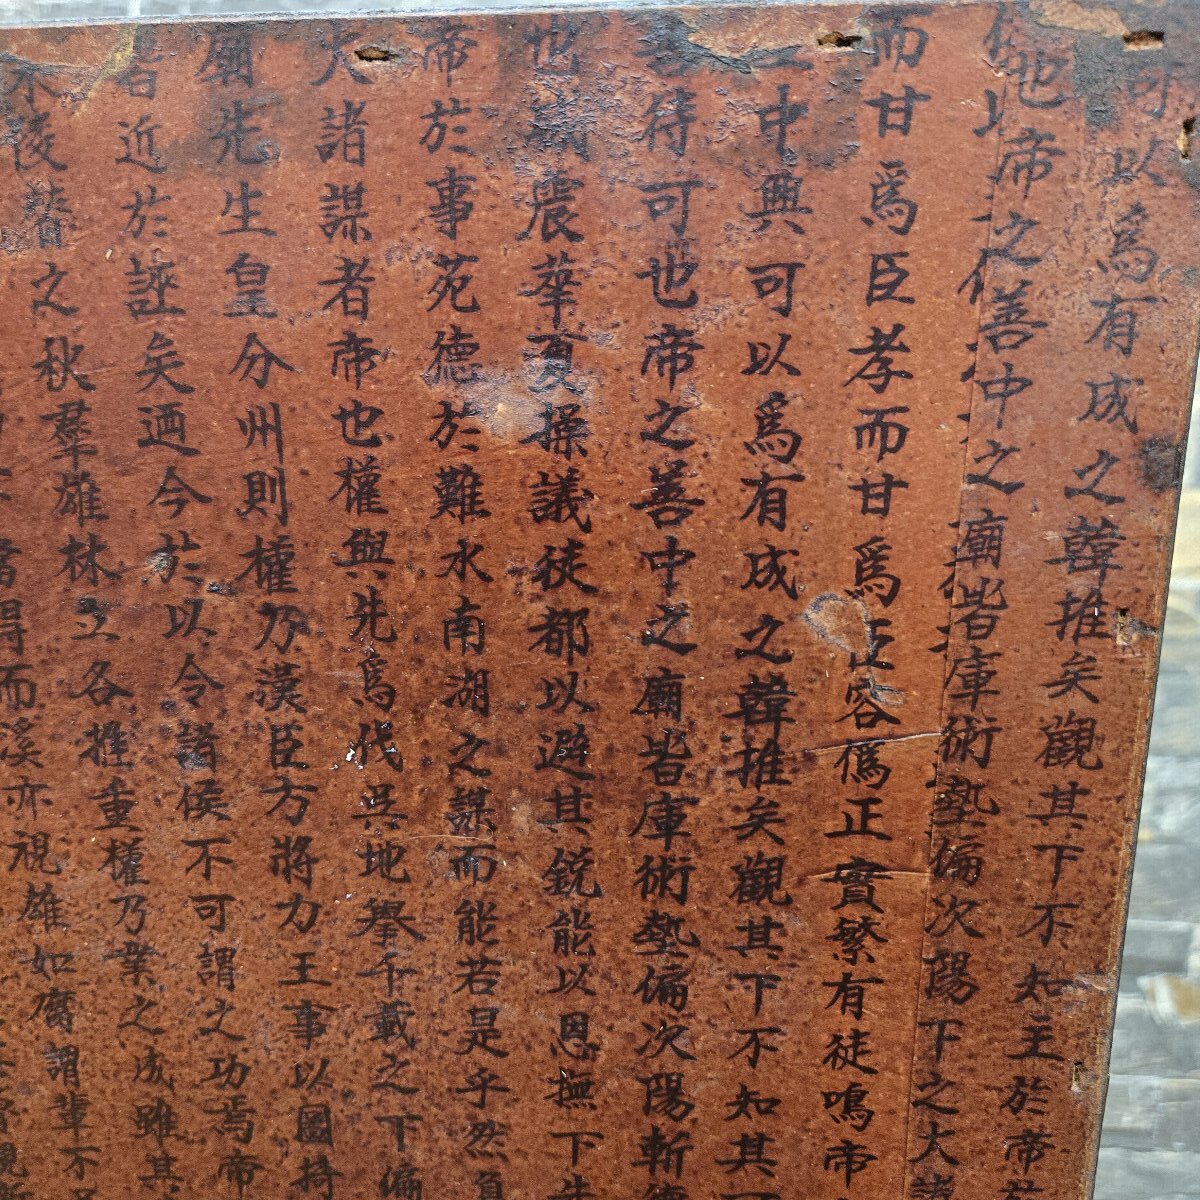 可以為有成之韓推矣觀其下不知主於帝
也帝之善中之廟皆庫術藝偏次陽下之大諸
而甘爲臣孝而甘爲臣容僞正實繁有徒鳴帝
中興可以爲有成之韓推矣觀其下不知其
善待可也帝之善中之廟皆庫術藝偏次陽斬
也威震華夏操議徒都以避其銳能以恩撫下
帝於事苑德於難水南湖之謀而能若是乎然負
大諸謀者帝也權與先爲伐吳地擧千載之下偏
廟先生皇分州則權乃漢臣方將力王事以圖掎
皆近於誣矣迺今於以令諸侯不可謂之功焉帝
不陵替之秋羣雄林立各推重權乃業之成雖其
而溪亦視雄如腐謂輩不